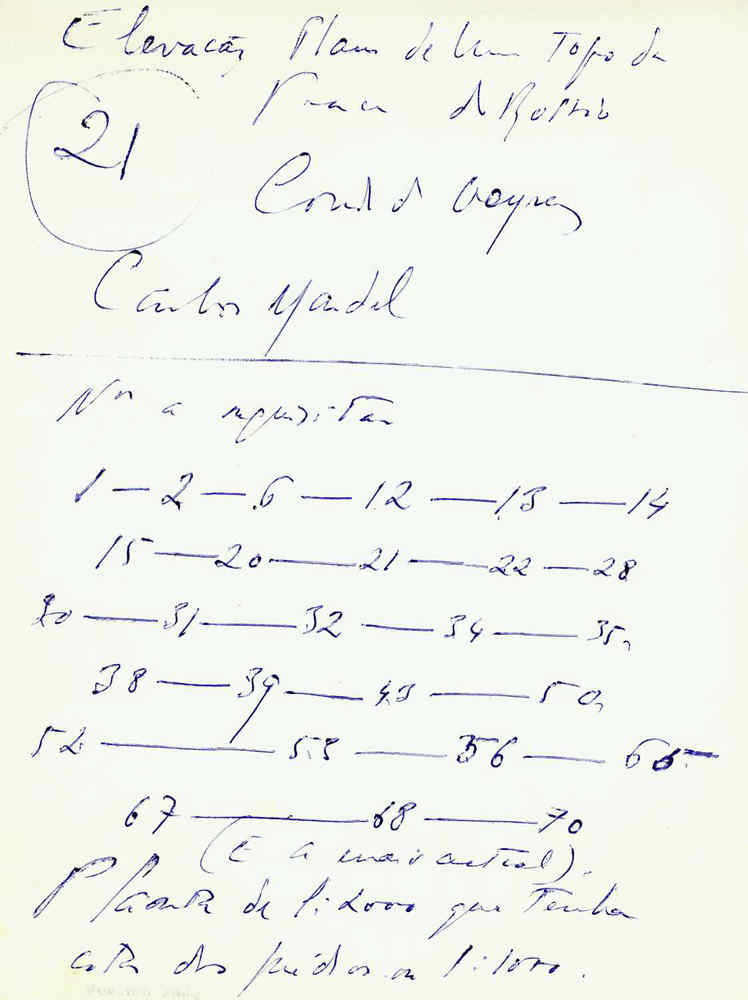 Elevação Plano de Um Topo da
Praça do Rossio
21
Conde d'Oeyras
Carlos Mardel
Nos a requisitar
1 — 2 — 6 — 12 — 13 — 14
15 — 20 — 21 — 22 — 28
30 — 31 — 32 — 34 — 35,
38 — 39 — 43 — 50,
52 — 53 — 56 — 65 —
67 — 68 — 70
(E a mais actual).
Planta de 1:2000 que tenha
cotas dos prédios ou 1:1000.